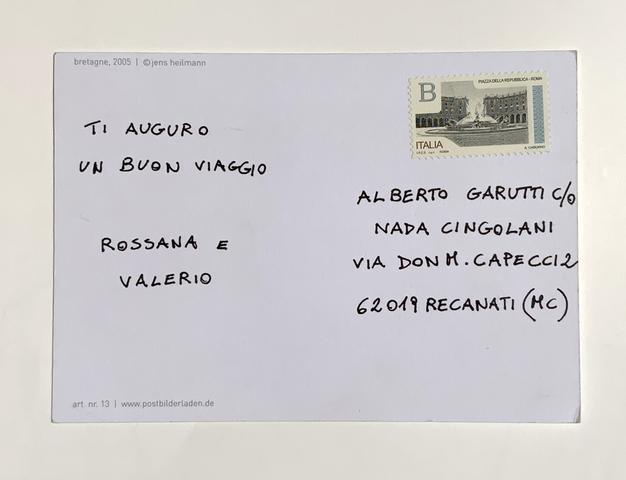 bretagne, 2005 | ©jens heilmann
TI AUGURO
UN BUON VIAGGIO
ROSSANA E
VALERIO
B
PIAZZA DELLA REPUBBLICA - ROMA
ITALIA
ALBERTO GARUTTI C/O
NADA CINGOLANI
VIA DON M. CAPECCI 2
62019 RECANATI (MC)
art. nr. 13 | www.postbilderladen.de